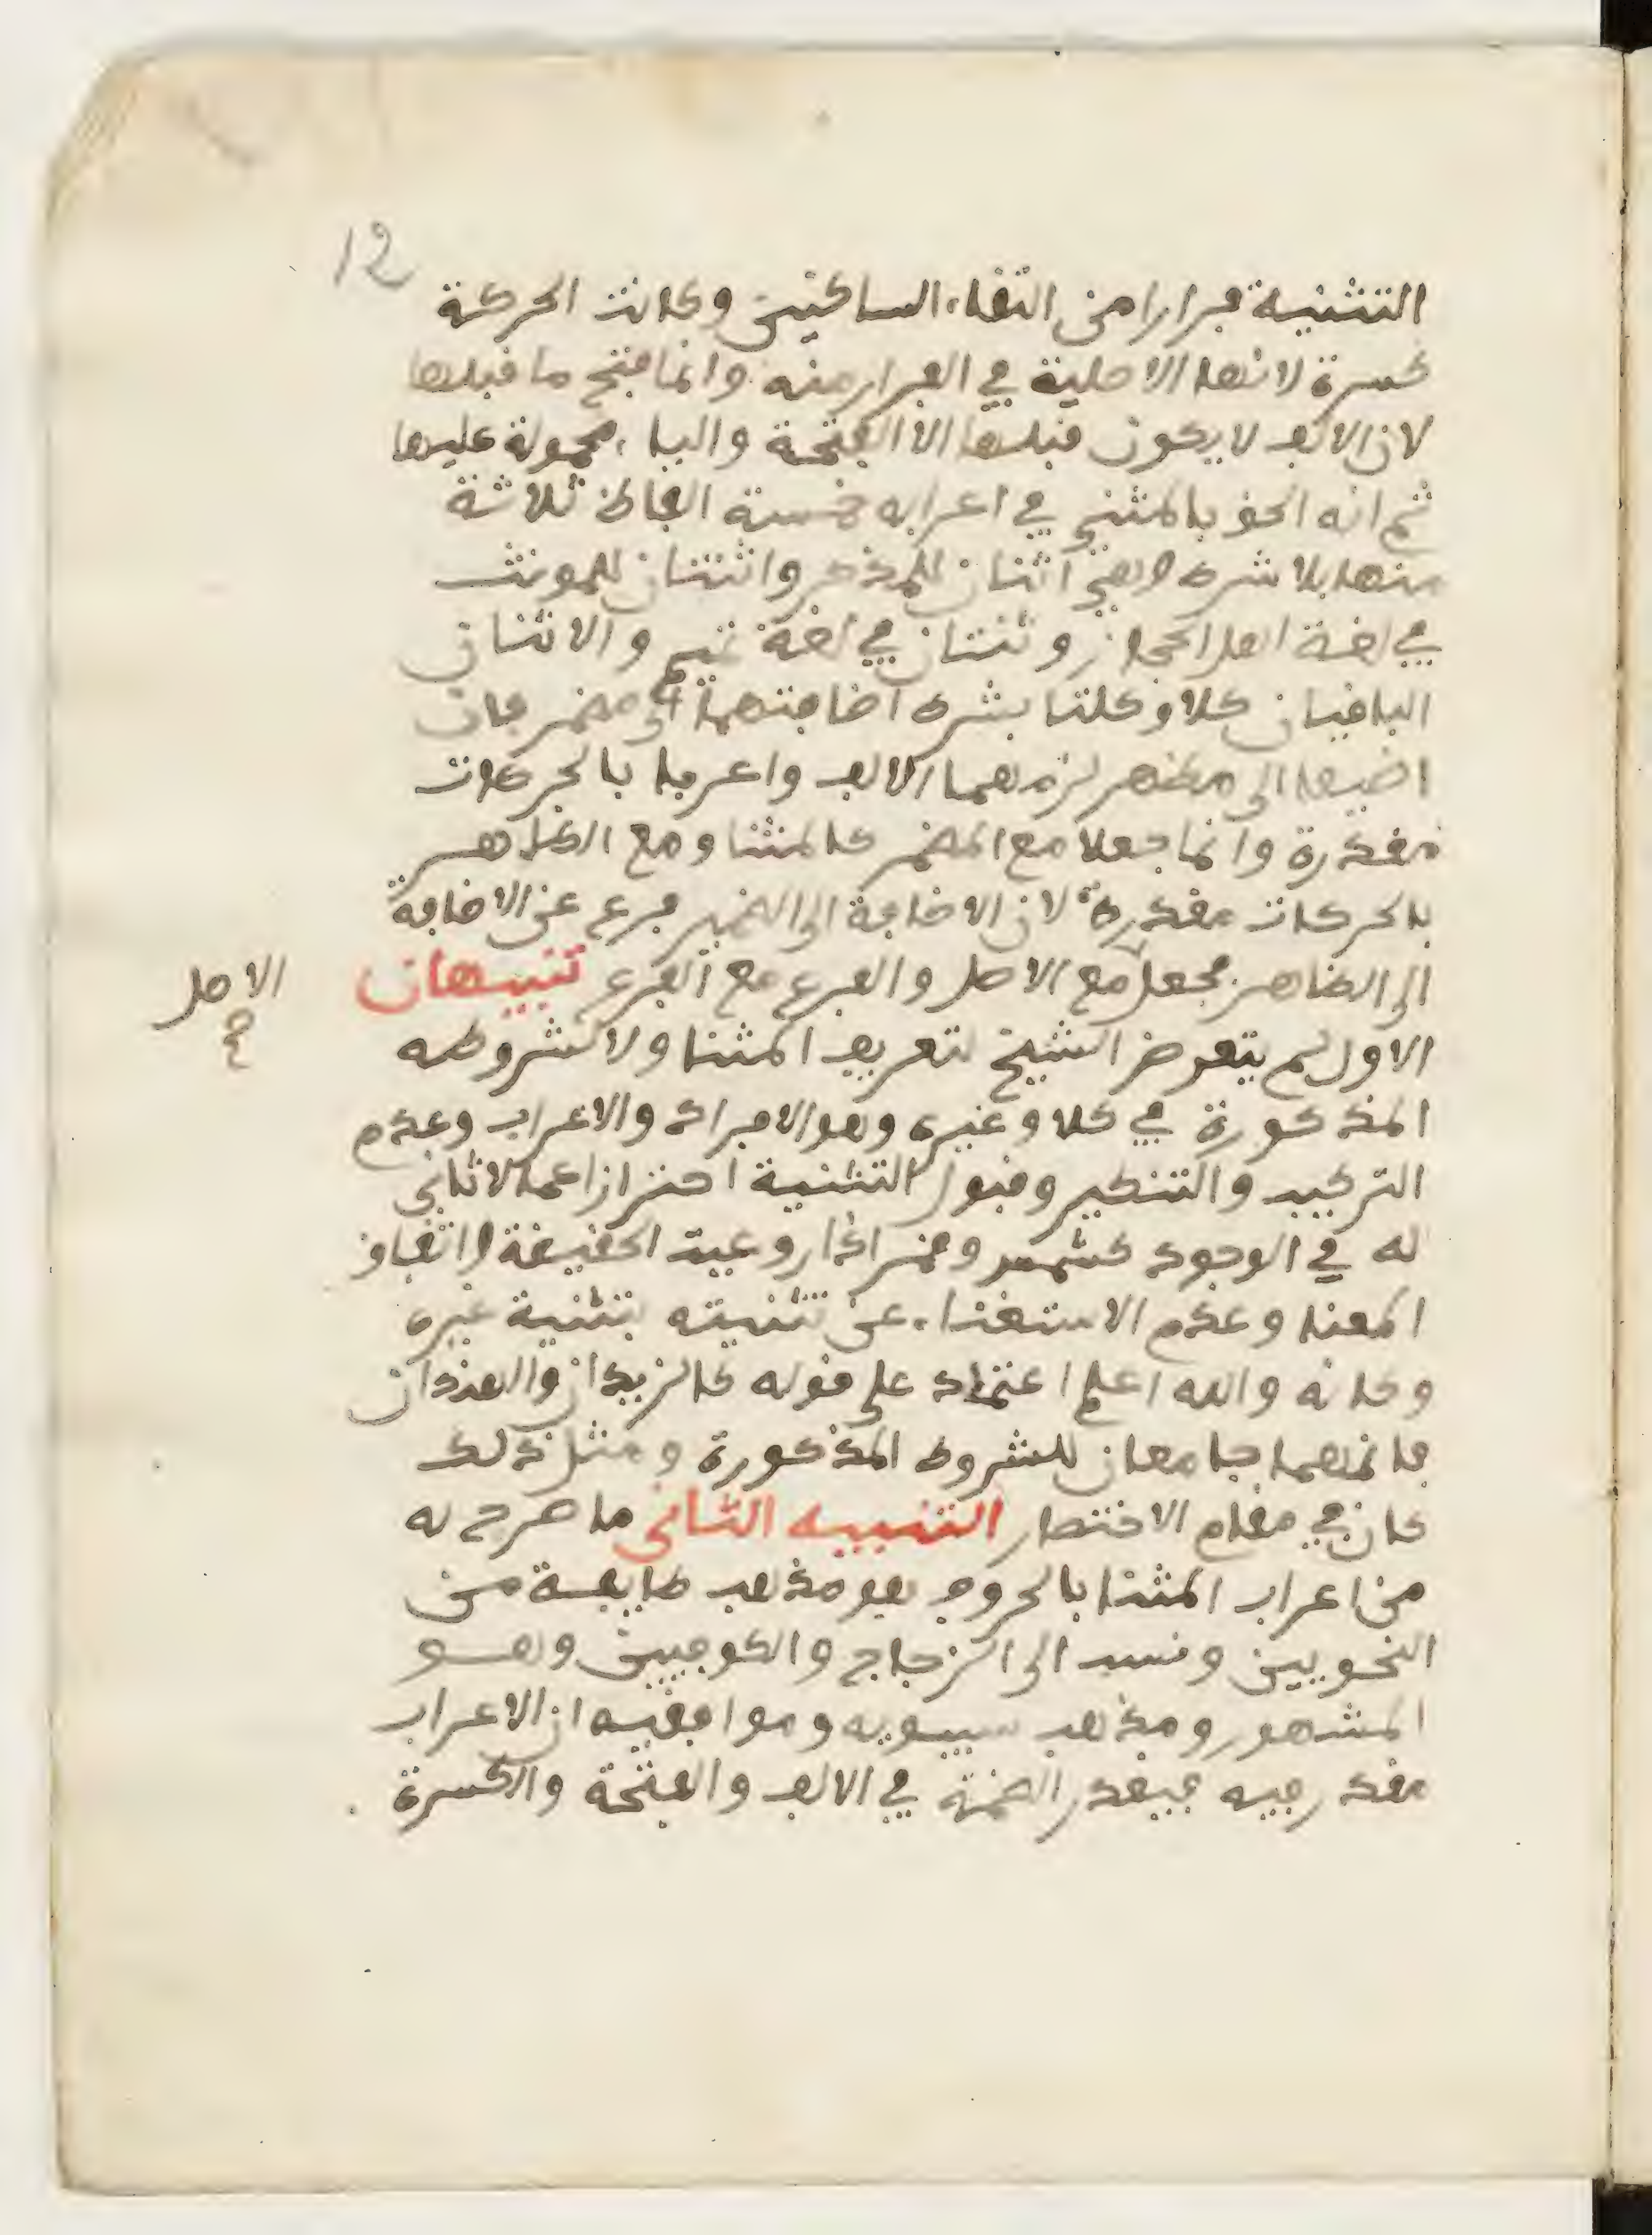 12
التثنية فرارا من التقاء الساكنين وكانت الحركة
كسرة لانها الاصلية في الفرار منه وانما فتح ما قبلها
لان الالف لا يكون قبلها الا الفتحة والياء محمولة عليها
ثم انه الحق بالمثنى في اعرابه خمسة الفاظ ثلاثة
منها بلا شرط وهي اثنان للمذكر واثنتان للمونث
في لغة اهل الحجاز وثنتان في لغة تميم والاثنان
الباقيان كلا وكلتا بشرط اضافتهما الى مضمر فان
اضيفا الى مظهر لزمهما الالف واعربا بالحركات
مقدرة وانما جعلا مع المضمر كالمثنا ومع الظاهر
بالحركات مقدرة لان الاضافة الى الضمير فرع عن الاضافة
الى الظاهر فجعل مع الاصل والفرع مع الفرع تنبيهان
الاصل
صح
الاول لم يتعرض الشيخ لتعريف المثنا ولا لشروطه
المذكورة في كلا وغيره وهو الافراد والاعراب وعدم
التركيب والتنكير وقبول التثنية احترازا عما لا ثاني
له في الوجود كشمس وقمر اذا روعيت الحقيقة واتفاق
المعنا وعدم الاستغناء عن تثنيته بتثنية غيره
وكانه والله اعلم اعتماد على قوله كالزيدان والهندان
فانهما جامعان للشروط المذكورة ومثل ذلك
كان في مقام الاختصار التنبيه الثاني ما صرح به
من اعراب المثنا بالحروف هو مذهب طايفة من
النحويين ونسب الى الزجاج والكوفيين وهو
المشهور ومذهب سيبويه وموافقيه ان الاعراب
مقدر فيه فيقدر الضمة في الالف والفتحة والكسرة